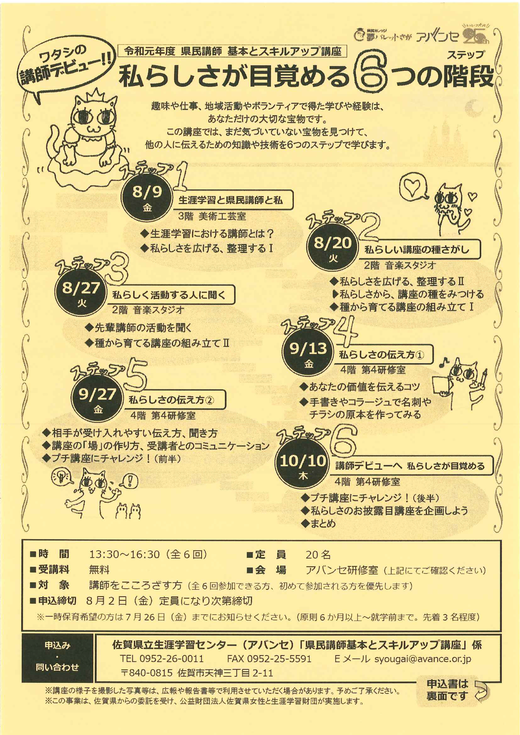 ワタシの
講師デビュー!!
令和元年度 県民講師 基本とスキルアップ講座
アバンセ
私らしさが目覚める6つの階段
ステップ
趣味や仕事、地域活動やボランティアで得た学びや経験は、
あなただけの大切な宝物です。
この講座では、まだ気づいていない宝物を見つけて、
他の人に伝えるための知識や技術を6つのステップで学びます。
ステップ1
8/9
金
生涯学習と県民講師と私
3階 美術工芸室
◆生涯学習における講師とは?
◆私らしさを広げる、整理するⅠ
ステップ2
8/20
火
私らしい講座の種さがし
2階 音楽スタジオ
◆私らしさを広げる、整理するⅡ
◆私らしさから、講座の種をみつける
◆種から育てる講座の組み立てⅠ
ステップ3
8/27
火
私らしく活動する人に聞く
2階 音楽スタジオ
◆先輩講師の活動を聞く
◆種から育てる講座の組み立てⅡ
ステップ4
9/13
金
私らしさの伝え方①
4階 第4研修室
◆あなたの価値を伝えるコツ
◆手書きやコラージュで名刺や
チラシの原本を作ってみる
ステップ5
9/27
金
私らしさの伝え方②
4階 第4研修室
◆相手が受け入れやすい伝え方、聞き方
◆講座の「場」の作り方、受講者とのコミュニケーション
◆プチ講座にチャレンジ!(前半)
ステップ6
10/10
木
講師デビューへ 私らしさが目覚める
4階 第4研修室
◆プチ講座にチャレンジ!(後半)
◆私らしさのお披露目講座を企画しよう
◆まとめ
■時 間 13:30～16:30(全6回) ■定 員 20名
■受講料 無料 ■会 場 アバンセ研修室(上記にてご確認ください)
■対 象 講師をこころざす方(全6回参加できる方、初めて参加される方を優先します)
■申込締切 8月2日(金)定員になり次第締切
※一時保育希望の方は7月26日(金)までにお知らせください。(原則6か月以上～就学前まで。先着3名程度)
申込み
・
問い合わせ
佐賀県立生涯学習センター(アバンセ)「県民講師基本とスキルアップ講座」係
TEL 0952-26-0011 FAX 0952-25-5591 Eメール syougai@avance.or.jp
〒840-0815 佐賀市天神三丁目2-11
※講座の様子を撮影した写真等は、広報や報告書等で利用させていただく場合があります。予めご了承ください。
※この事業は、佐賀県からの委託を受け、公益財団法人佐賀県女性と生涯学習財団が実施します。
申込書は
裏面です